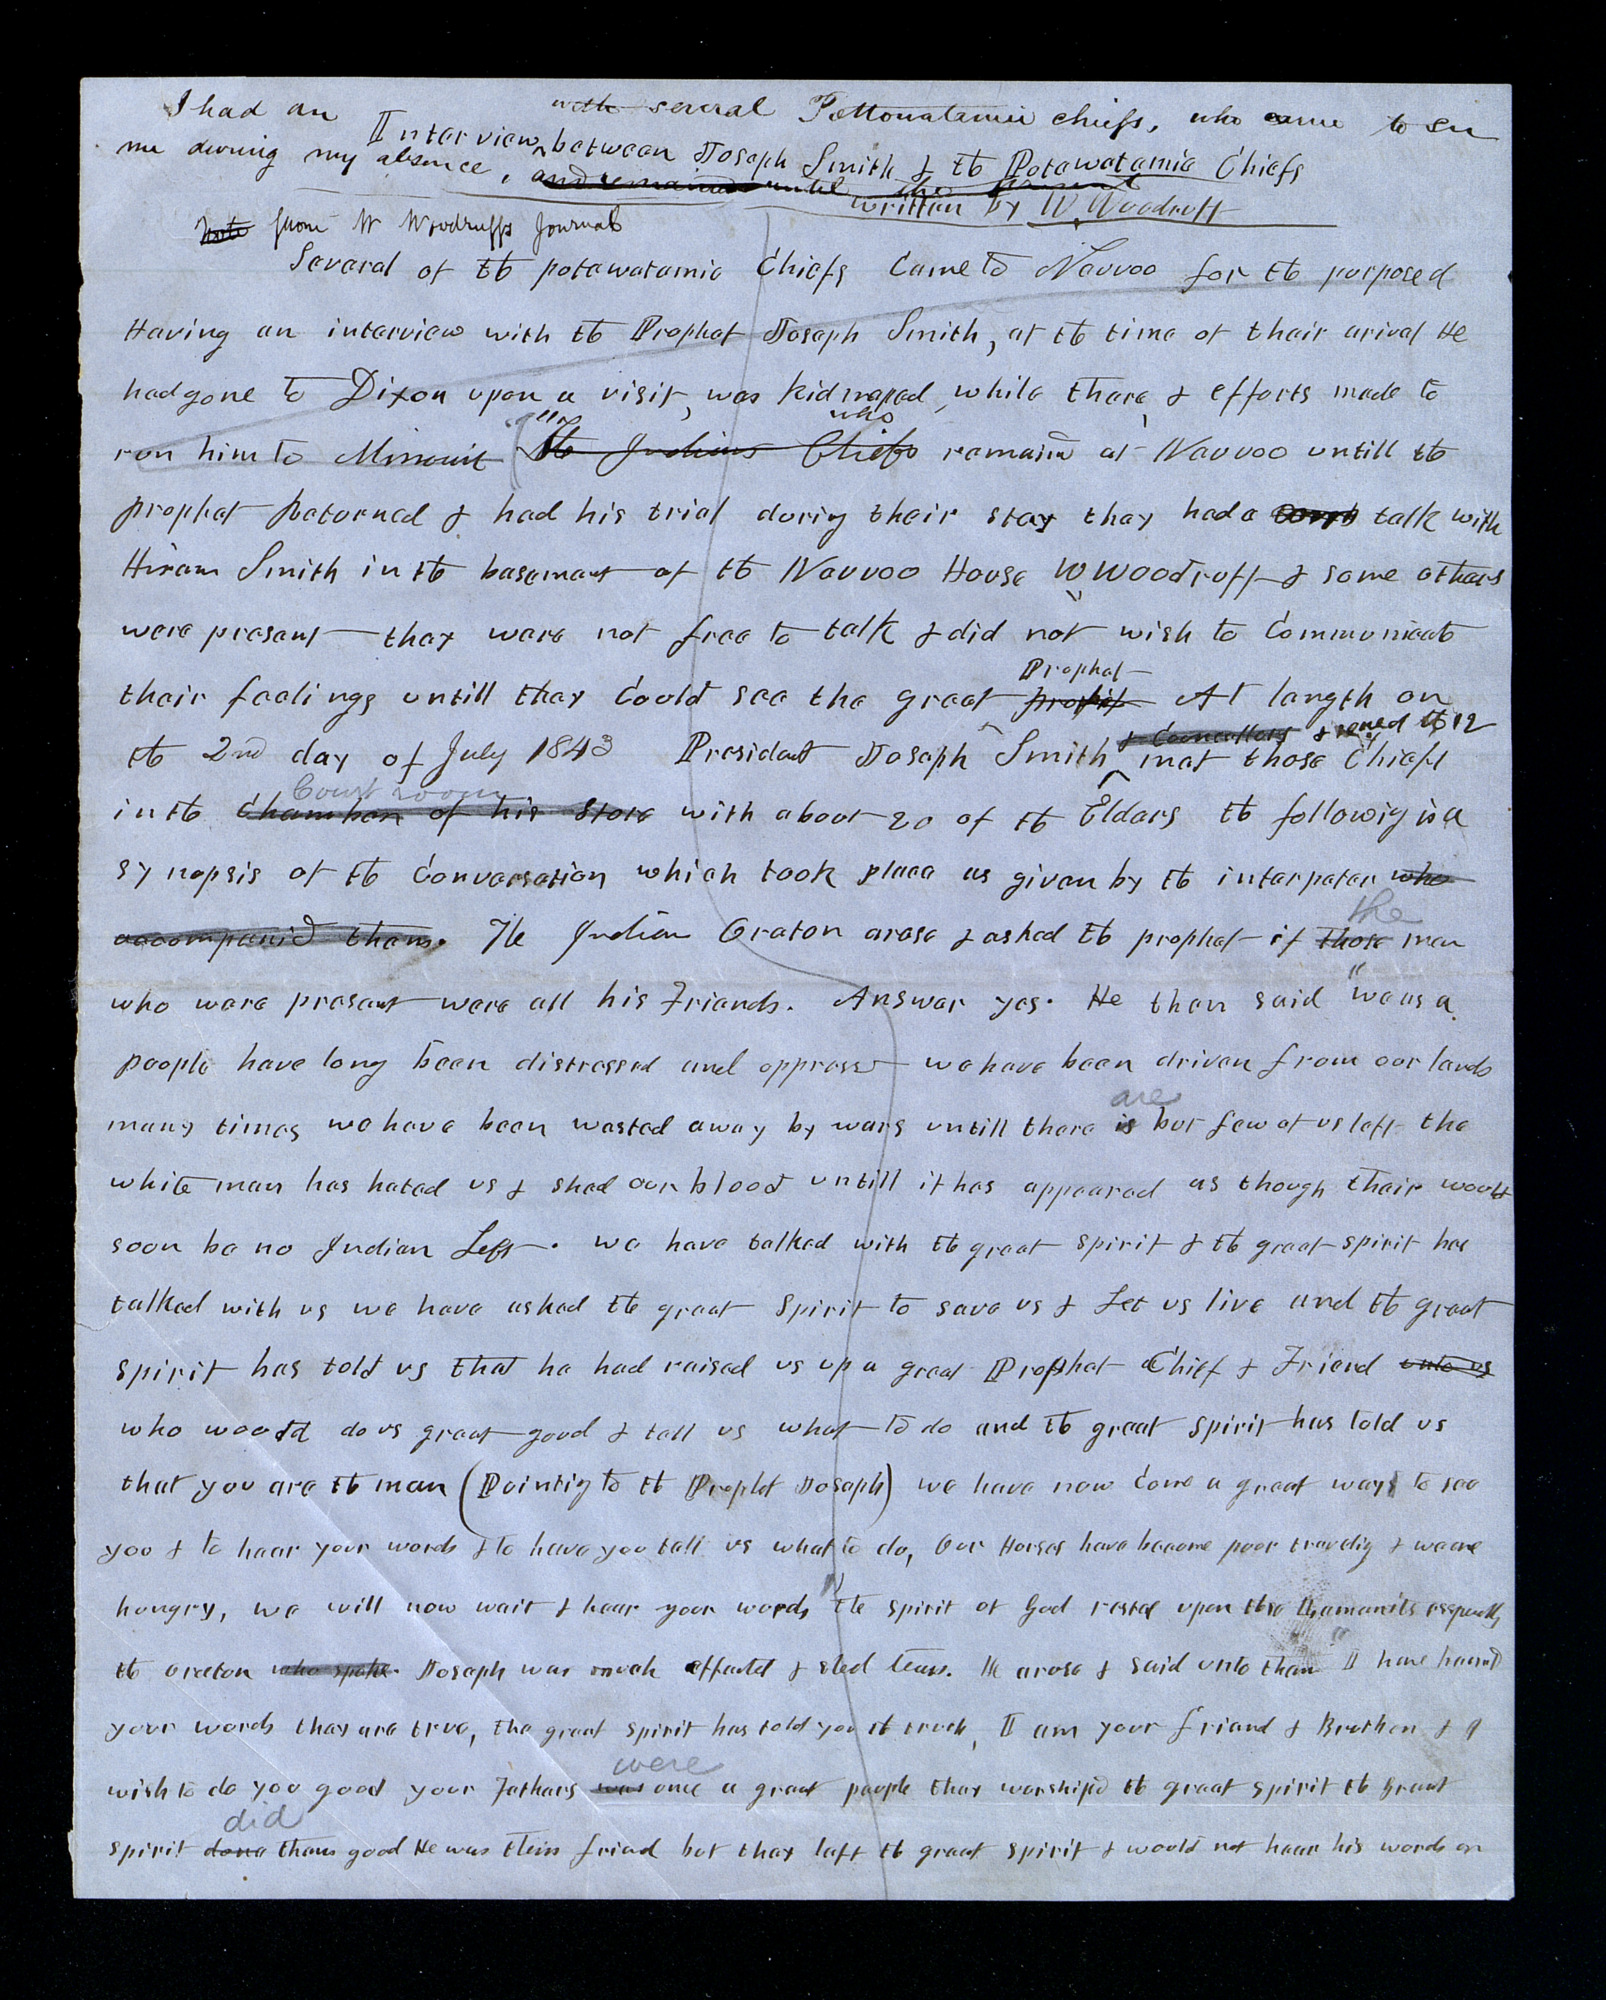 I had an with several Pottowatamie chiefs, who came to see
Interview between Joseph Smith & the Potawatamie Chiefs
me during my absence, and remained until the
written by W. Woodruff
Note from W Woodruffs Journal
Several of the potawatamie Chiefs Came to Nauvoo for the purposed
Having an interview with the Prophet Joseph Smith, at the time of their arival He
had gone to Dixon upon a visit, was kidnaped while there, & efforts made to
run him to Missouri The Indians Chiefs who remaind at Nauvoo untill the
prophet Returned & had his trial during their stay they had a talk with
Hiram Smith in the basement of the Nauvoo House W Woodruff & some others
were present they were not free to talk & did not wish to Communicate
Prophet
their feelings untill they Could see the great profit At length on
& Councellors & several of 12
the 2nd day of July 1843 President Joseph Smith met those Chiefs
Court room
in the Chamber of his Store with about 20 of the Elders the followig is a
synopsis of the Conversation which took place as given by the interpater who
the
accompanid them. The Indian Orator arose & asked the prophet if those men
who were present were all his Friends. Answer yes. He then said "we as a
people have long been distressed and oppress we have been driven from our lands
are
many times we have been wasted away by wars untill there is but few of us left the
white man has hated us & shed our blood untill it has appeared as though their would
soon be no Indian Left. we have talked with the great spirit & the great spirit has
talked with us we have asked the great Spirit to save us & Let us live and the great
spirit has told us that he had raised us up a great Prophet Chief & Friend unto us
who would do us great good & tell us what to do and the great spirit has told us
that you are the man (Pointig to the Prophet Joseph) we have now Come a great ways to see
you & to hear your words & to have you tell us what to do, Our Horses have become poor travelig & we are
hongry, we will now wait & hear your words" the spirit of God rested upon the Lamanits especially
the orator who spoke. Joseph was much affected & shed tears. He arose & said unto them "I have heard
your words they are true, the great spirit has told you the truth, I am your friend & Brother & I
were
wish to do you good your Fathers was once a great people they worshipd the great spirit the great
did
spirit done them good He was their friend but they left the great spirit & would not hear his words or